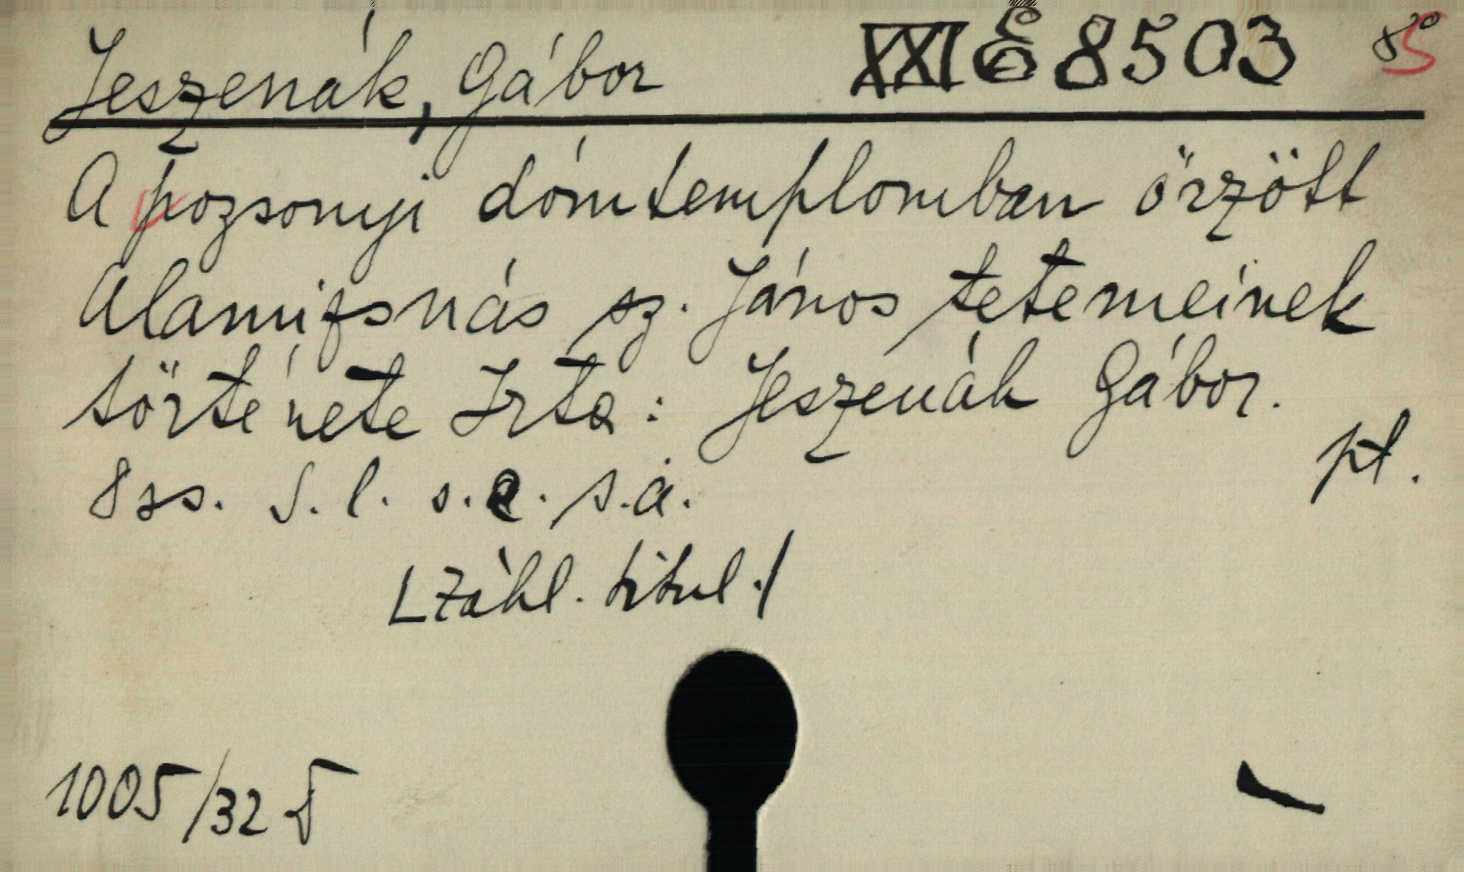 Jeszenák, Gábor XXI E 8503 8°
A pozsonyi dómtemplomban őrzött
Alamizsnás sz. János tetemeinek
története Irta: Jeszenák Gábor.
8 ss. S. l. s. e. s. a. pt.
[Záhl. titul.]
1005/32